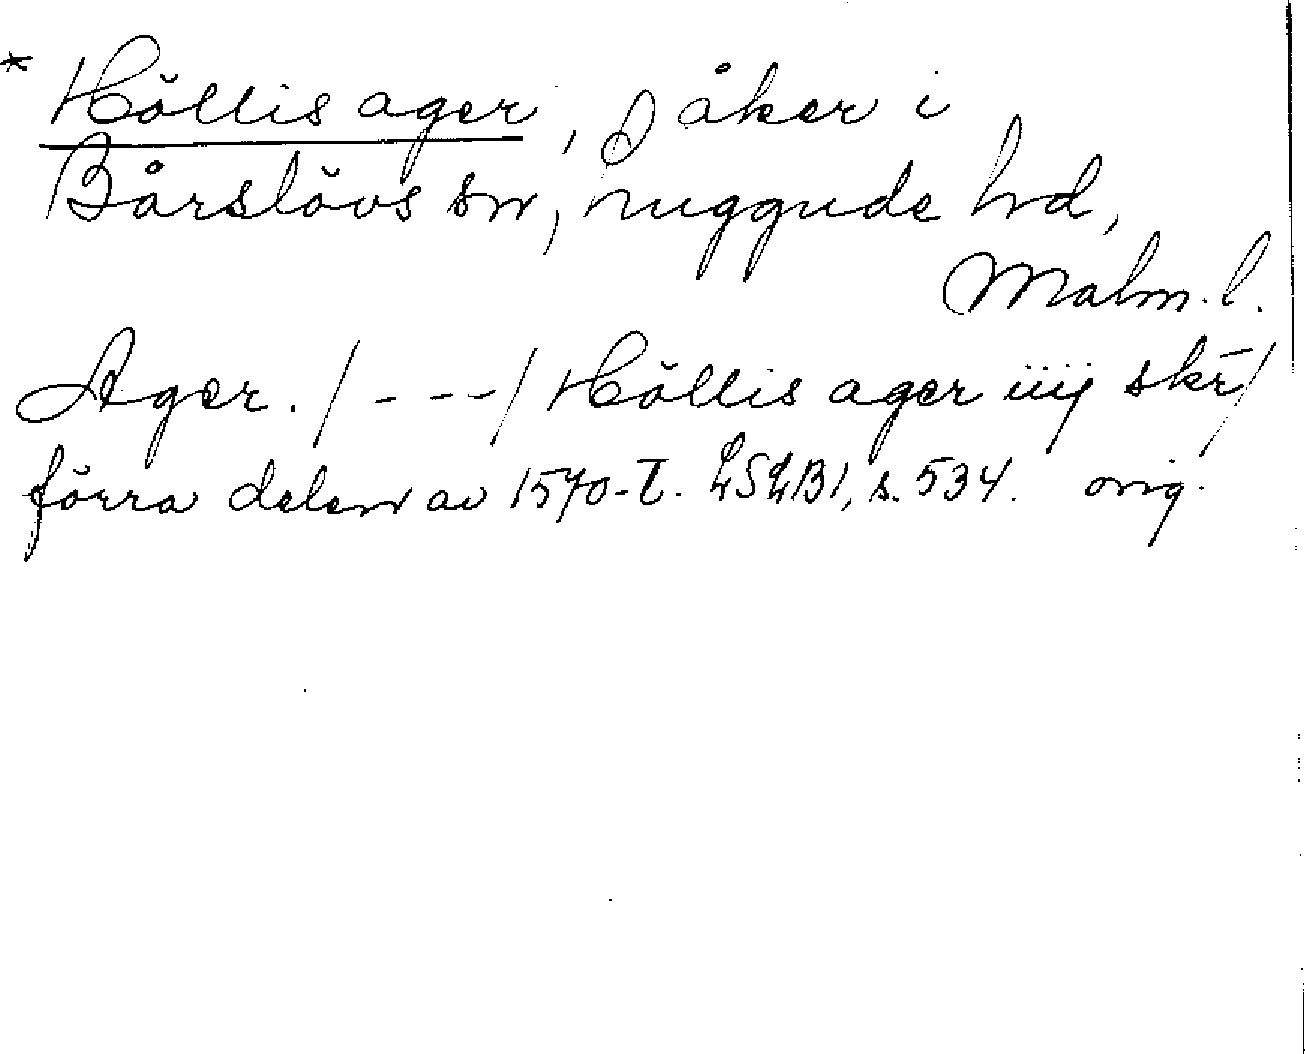 * Höllis ager, åker i
Bårslövs sn, Luggude hd,
Malm. l.
Ager. /---/ Höllis ager iiij skr̄/
förra delen av 1570-t. LSLB1, s. 534. orig.